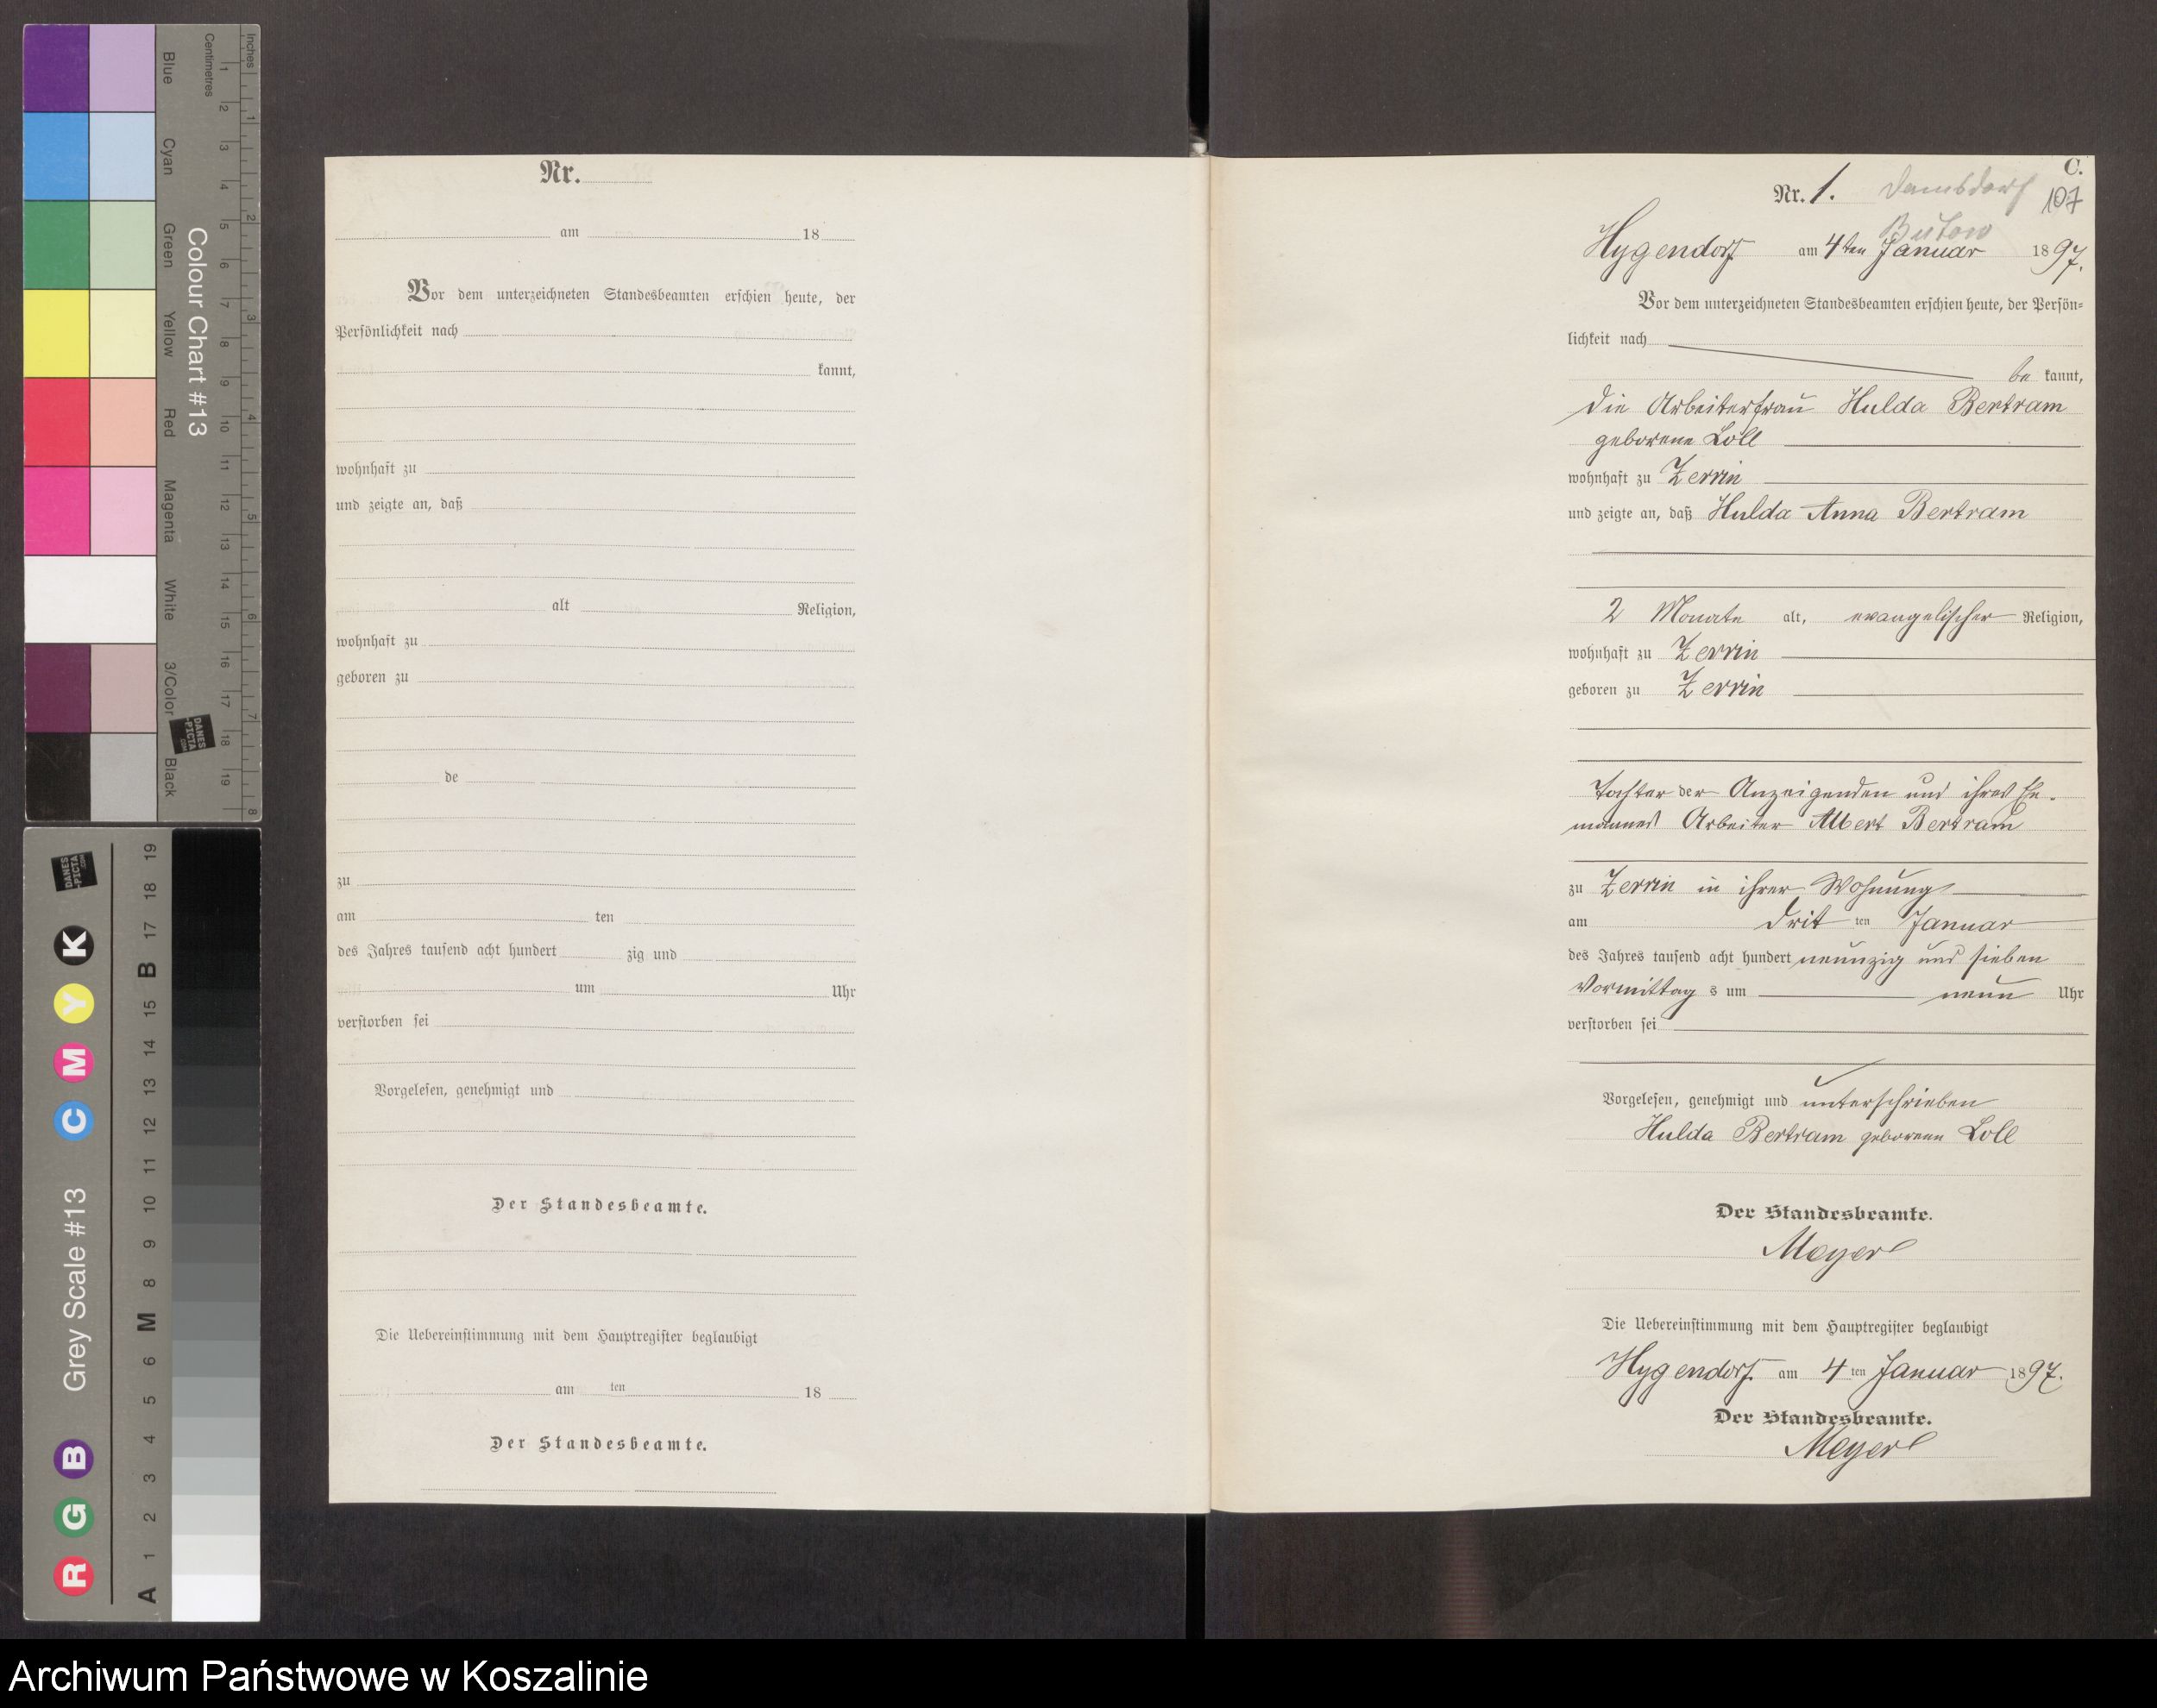 Blue
Cyan
Green
Yellow
Red
Magenta
White
3/Color
Black
Colour Chart #13
Centimetres
Inches
1 2 3 4 5 6 7 8 9 10 11 12 13 14 15 16 17 18 19
1 2 3 4 5 6 7 8
DANES
-PICTA
.COM
Grey Scale #13
R G B C M Y K
A 1 2 3 4 5 6 M 8 9 10 11 12 13 14 15 B 17 18 19
Nr.
am 18
Vor dem unterzeichneten Standesbeamten erschien heute, der
Persönlichkeit nach
kannt,
wohnhaft zu
und zeigte an, daß
alt Religion,
wohnhaft zu
geboren zu
de
zu
am ten
des Jahres tausend acht hundert zig und
um Uhr
verstorben sei
Vorgelesen, genehmigt und
Der Standesbeamte.
Die Uebereinstimmung mit dem Hauptregister beglaubigt
am ten 18
Der Standesbeamte.
C.
Nr. 1. Damsdorf 107
Butow
Hygendorf am 4ten Januar 1897.
Vor dem unterzeichneten Standesbeamten erschien heute, der Persön-
lichkeit nach
be kannt,
die Arbeiterfrau Hulda Bertram
geborene Loll
wohnhaft zu Zerrin
und zeigte an, daß Hulda Anna Bertram
2 Monate alt, evangelischer Religion,
wohnhaft zu Zerrin
geboren zu Zerrin
Tochter der Anzeigenden und ihres Ehe-
mannes Arbeiter Albert Bertram
zu Zerrin in ihrer Wohnung
am drit ten Januar
des Jahres tausend acht hundert neunzig und sieben
Vormittag s um neun Uhr
verstorben sei
Vorgelesen, genehmigt und unterschrieben
Hulda Bertram geborene Loll
Der Standesbeamte.
Meyer
Die Uebereinstimmung mit dem Hauptregister beglaubigt
Hygendorf am 4 ten Januar 1897.
Der Standesbeamte.
Meyer
Archiwum Państwowe w Koszalinie